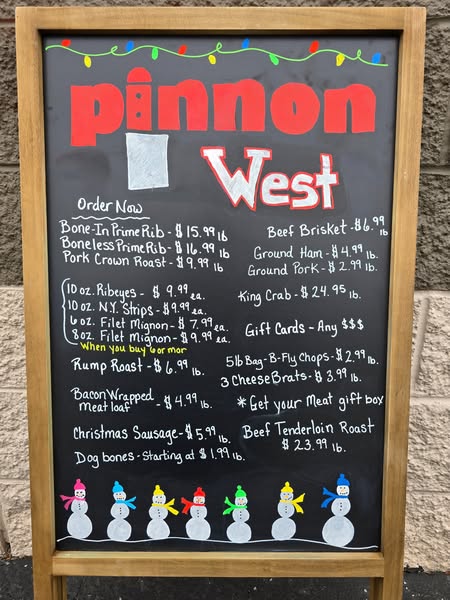 pinnon
West
Order Now
Bone-In Prime Rib - $15.99 lb
Boneless Prime Rib - $16.99 lb
Pork Crown Roast - $9.99 lb
10 oz. Ribeyes - $9.99 ea.
10 oz. N.Y. Strips - $9.99 ea.
6 oz. Filet Mignon - $7.99 ea.
8 oz. Filet Mignon - $9.99 ea.
When you buy 6 or mor
Rump Roast - $6.99 lb.
Bacon Wrapped
meatloaf - $4.99 lb.
Christmas Sausage - $5.99 lb.
Dog bones - Starting at $1.99 lb.
Beef Brisket - $6.99 lb
Ground Ham - $4.99 lb.
Ground Pork - $2.99 lb.
King Crab - $24.95 lb.
Gift Cards - Any $$$
5 lb Bag - B-Fly Chops - $2.99 lb.
3 Cheese Brats - $3.99 lb.
* Get your Meat gift box
Beef Tenderloin Roast
$23.99 lb.